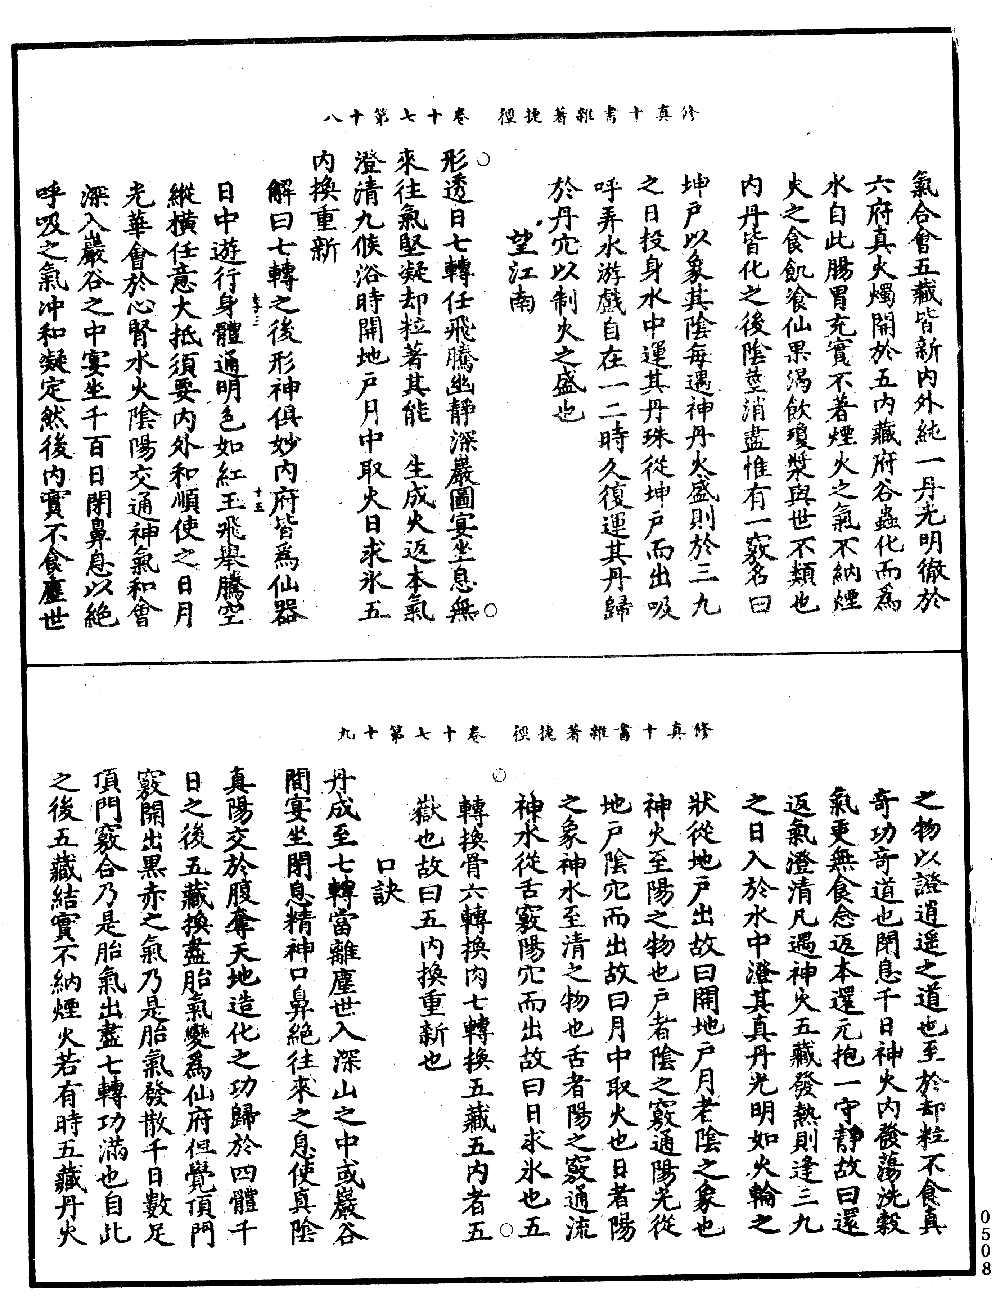 修真十書雜著捷徑　卷十七第十八
氣合會五藏皆新內外純一丹光明徹於
六府真火燭開於五內藏府谷蟲化而為
水自此腸胃充實不著煙火之氣不納煙
火之食飢飡仙果渴飲瓊漿與世不類也
內丹皆化之後陰莖消盡惟有一竅名曰
坤戶以象其陰每遇神丹火盛則於三九
之日投身水中運其丹珠從坤戶而出吸
呼弄水游戲自在一二時久復運其丹歸
於丹穴以制火之盛也
望江南
形透日七轉任飛騰幽靜深巖圖宴坐息無
來往氣堅凝却粒著其能　生成火返本氣
澄清九候浴時開地戶月中取火日求氷五
內換重新
解曰七轉之後形神俱妙內府皆為仙器
日中遊行身體通明色如紅玉飛舉騰空
縱橫任意大抵須要內外和順使之日月
光華會於心腎水火陰陽交通神氣和會
深入巖谷之中宴坐千百日閉鼻息以絕
呼吸之氣冲和凝定然後內實不食塵世
修真十書雜著捷徑　卷十七第十九
之物以證逍遥之道也至於却粒不食真
奇功奇道也閉息千日神火內發蕩洗穀
氣更無食念返本還元抱一守靜故曰還
返氣澄清凡遇神火五藏發熱則逢三九
之日入於水中澄其真丹光明如火輪之
狀從地戶出故曰開地戶月者陰之象也
神火至陽之物也戶者陰之竅通陽光從
地戶陰穴而出故曰月中取火也日者陽
之象神水至清之物也舌者陽之竅通流
神水從舌竅陽穴而出故曰日求氷也五
轉換骨六轉換肉七轉換五藏五內者五
嶽也故曰五內換重新也
口訣
丹成至七轉當離塵世入深山之中或巖谷
間宴坐閉息精神口鼻絕往來之息使真陰
真陽交於腹奪天地造化之功歸於四體千
日之後五藏換盡胎氣變為仙府但覺頂門
竅開出黑赤之氣乃是胎氣發散千日數足
頂門竅合乃是胎氣出盡七轉功滿也自此
之後五藏結實不納煙火若有時五藏丹火
0508